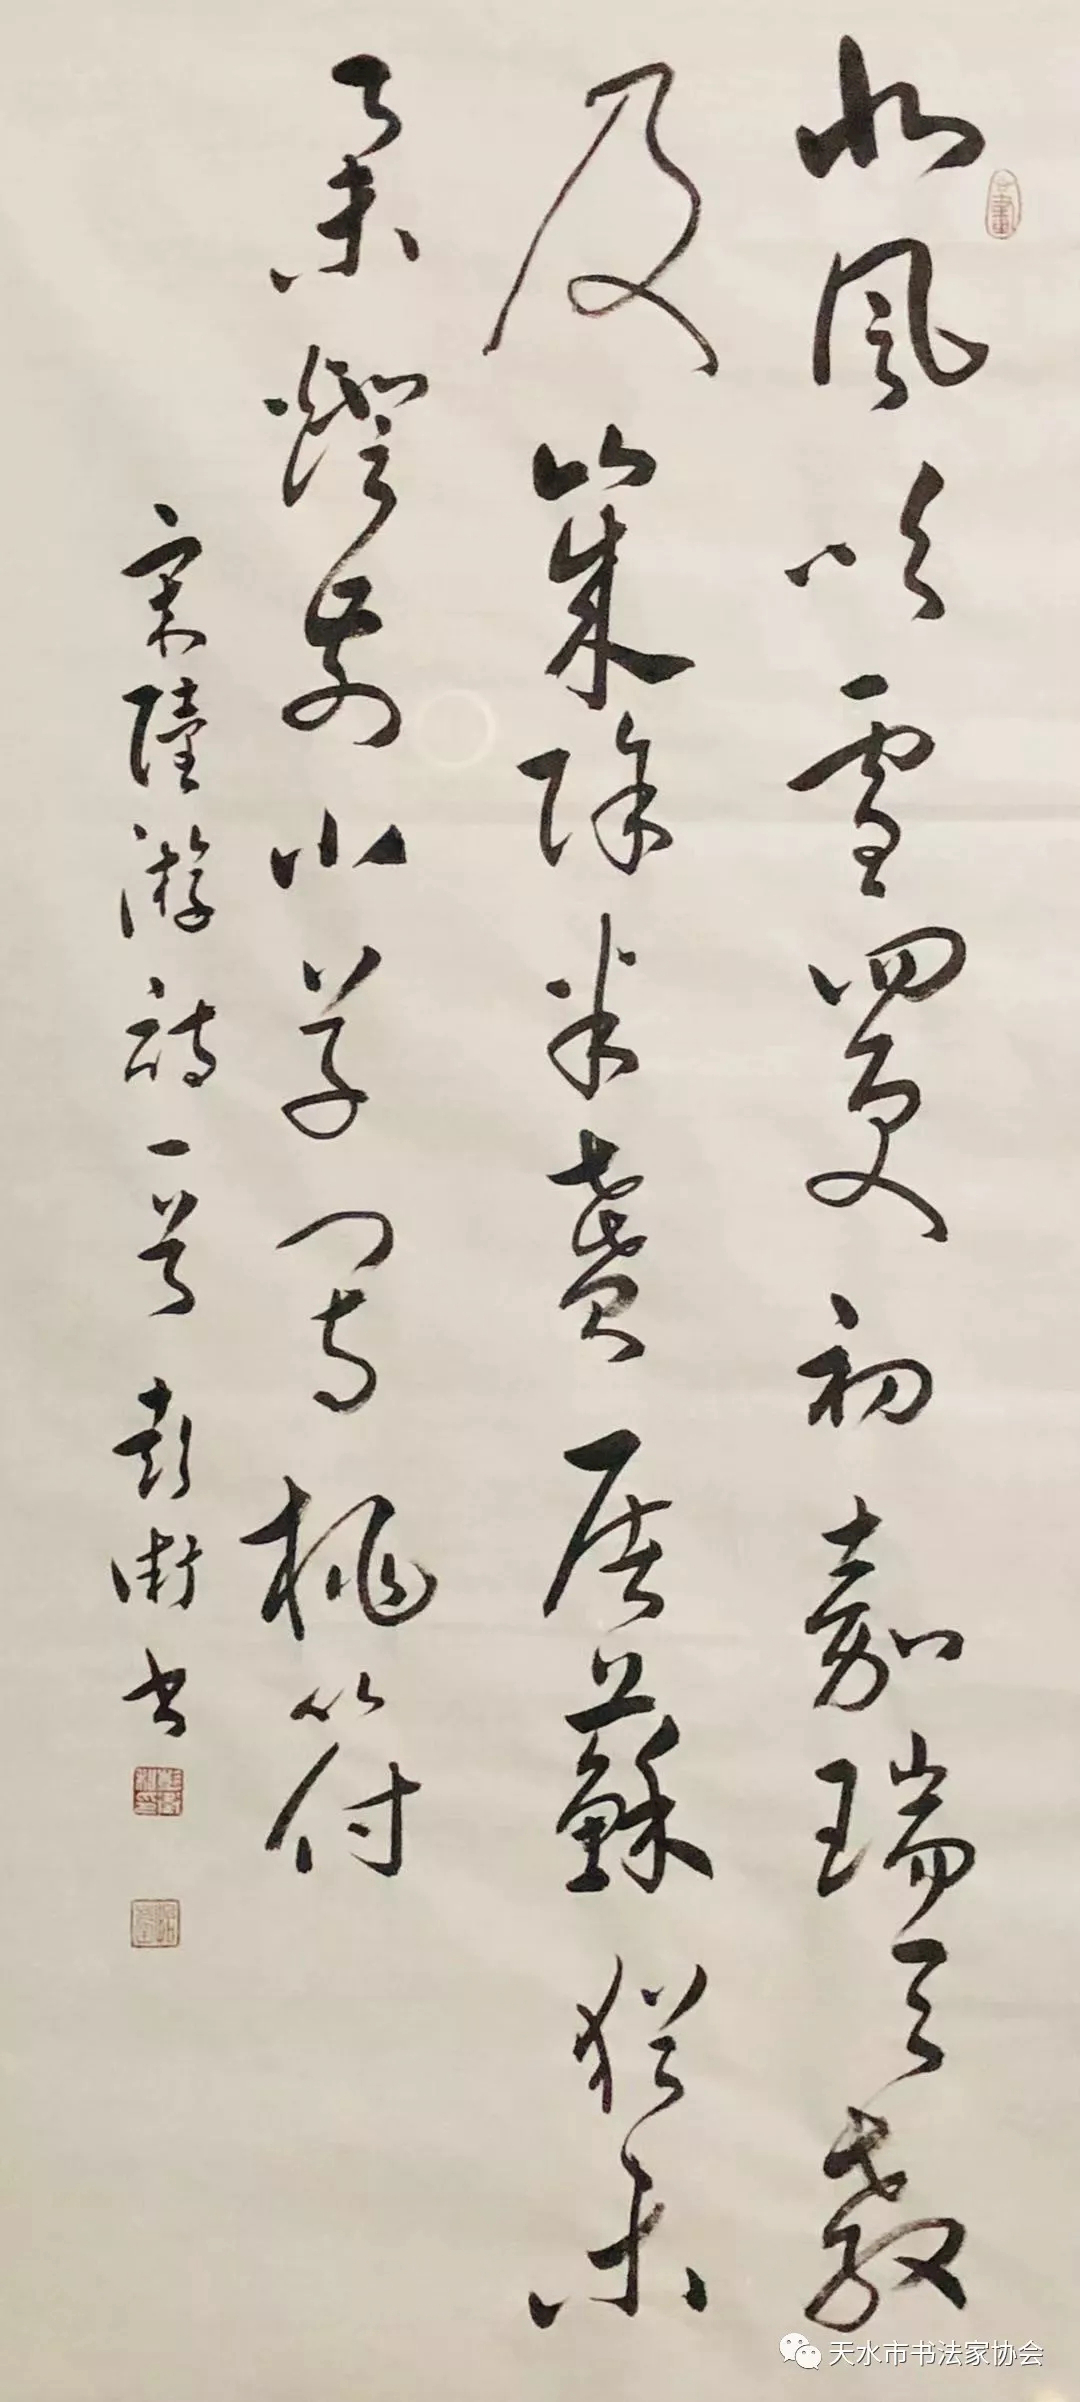 北風吹雪四更初嘉瑞天教
及歲除半盞屠蘇猶未
舉燈前小草寫桃符
宋陸游詩一首彭衛書
天水市书法家协会